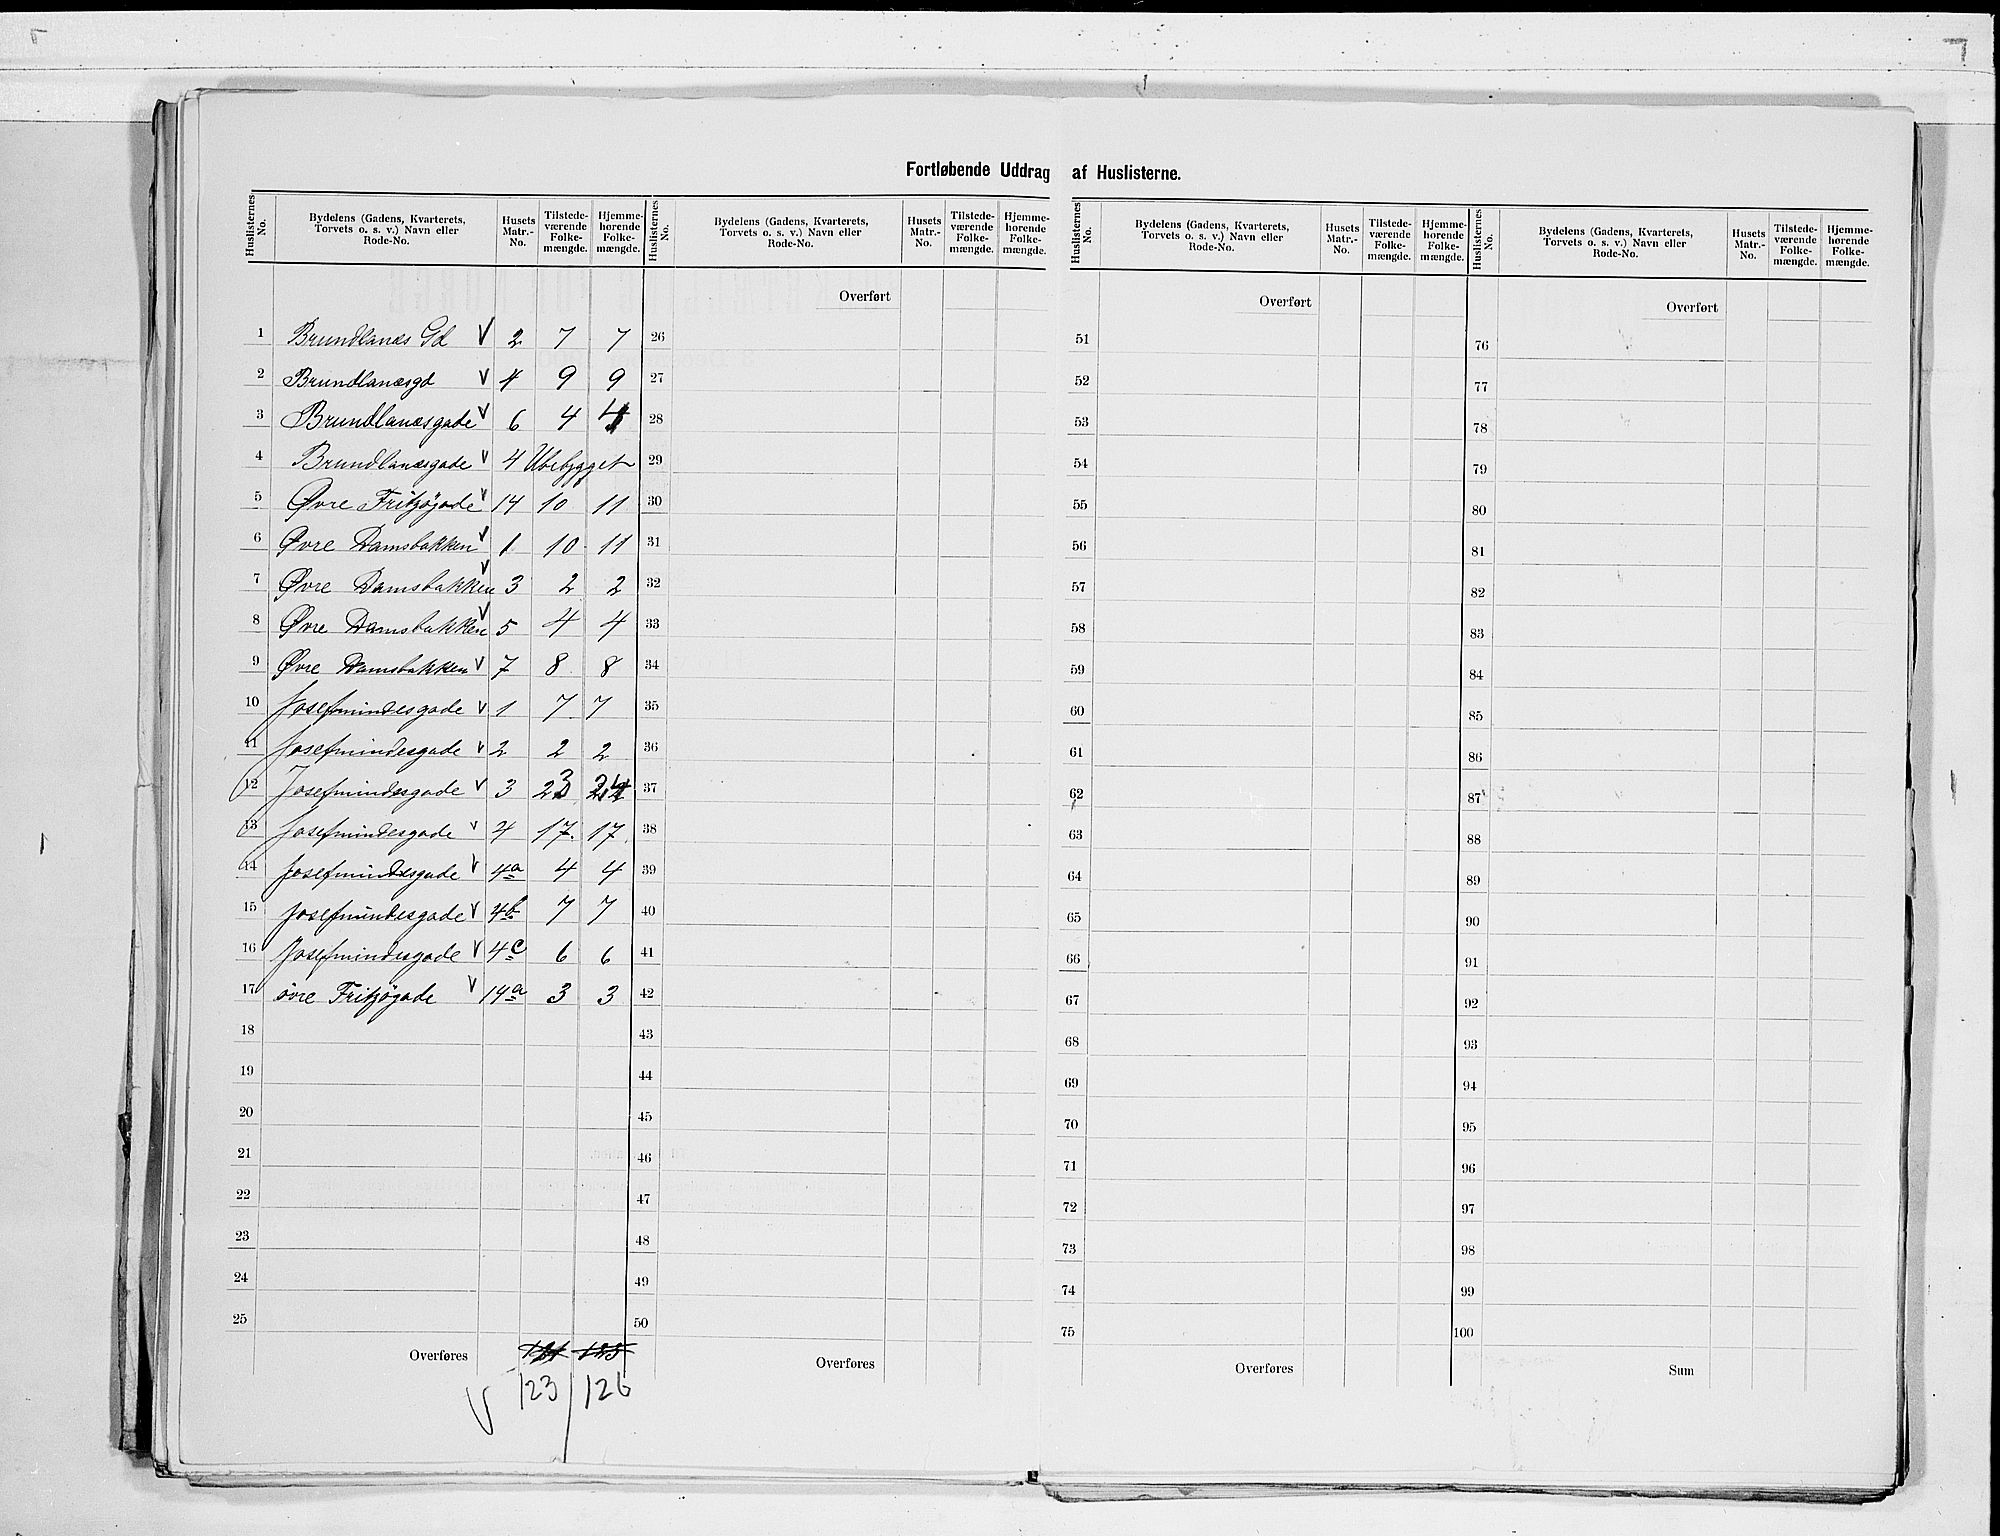 Fortløbende Uddrag af Huslisterne.
Huslisternes No. Bydelens (Gadens, Kvarterets, Torvets o. s. v.) Navn eller Rode-No. Husets Matr.-No. Tilstedeværende Folkemængde. Hjemmehørende Folkemængde. Huslisternes No. Bydelens (Gadens, Kvarterets, Torvets o. s. v.) Navn eller Rode-No. Husets Matr.-No. Tilstedeværende Folkemængde. Hjemmehørende Folkemængde. Huslisternes No. Bydelens (Gadens, Kvarterets, Torvets o. s. v.) Navn eller Rode-No. Husets Matr.-No. Tilstedeværende Folkemængde. Hjemmehørende Folkemængde. Huslisternes No. Bydelens (Gadens, Kvarterets, Torvets o. s. v.) Navn eller Rode-No. Husets Matr.-No. Tilstedeværende Folkemængde. Hjemmehørende Folkemængde.
Overført Overført Overført
1 Brundlanæs Gd V 2 7 7 26 51 76
2 Brundlanæsgd V 4 9 9 27 52 77
3 Brundlanæsgade V 6 4 4 28 53 78
4 Brundlanæsgade V 4 Ubebygget 29 54 79
5 Øvre Fritzøgade V 14 10 11 30 55 80
6 Øvre Damsbakken V 1 10 11 31 56 81
7 Øvre Damsbakken V 3 2 2 32 57 82
8 Øvre Damsbakken V 5 4 4 33 58 83
9 Øvre Damsbakken V 7 8 8 34 59 84
10 Josefmindesgade V 1 7 7 35 60 85
11 Josefmindesgade V 2 2 2 36 61 86
12 Josefmindesgade V 3 23 24 37 62 87
13 Josefmindesgade V 4 17 17 38 63 88
14 Josefmindesgade V 4a 4 4 39 64 89
15 Josefmindesgade V 4b 7 7 40 65 90
16 Josefmindesgade V 4c 6 6 41 66 91
17 øvre Fritzøgade V 14a 3 3 42 67 92
18 43 68 93
19 44 69 94
20 45 70 95
21 46 71 96
22 47 72 97
23 48 73 98
24 49 74 99
25 50 75 100
Overføres Overføres Overføres Sum
V 123 126